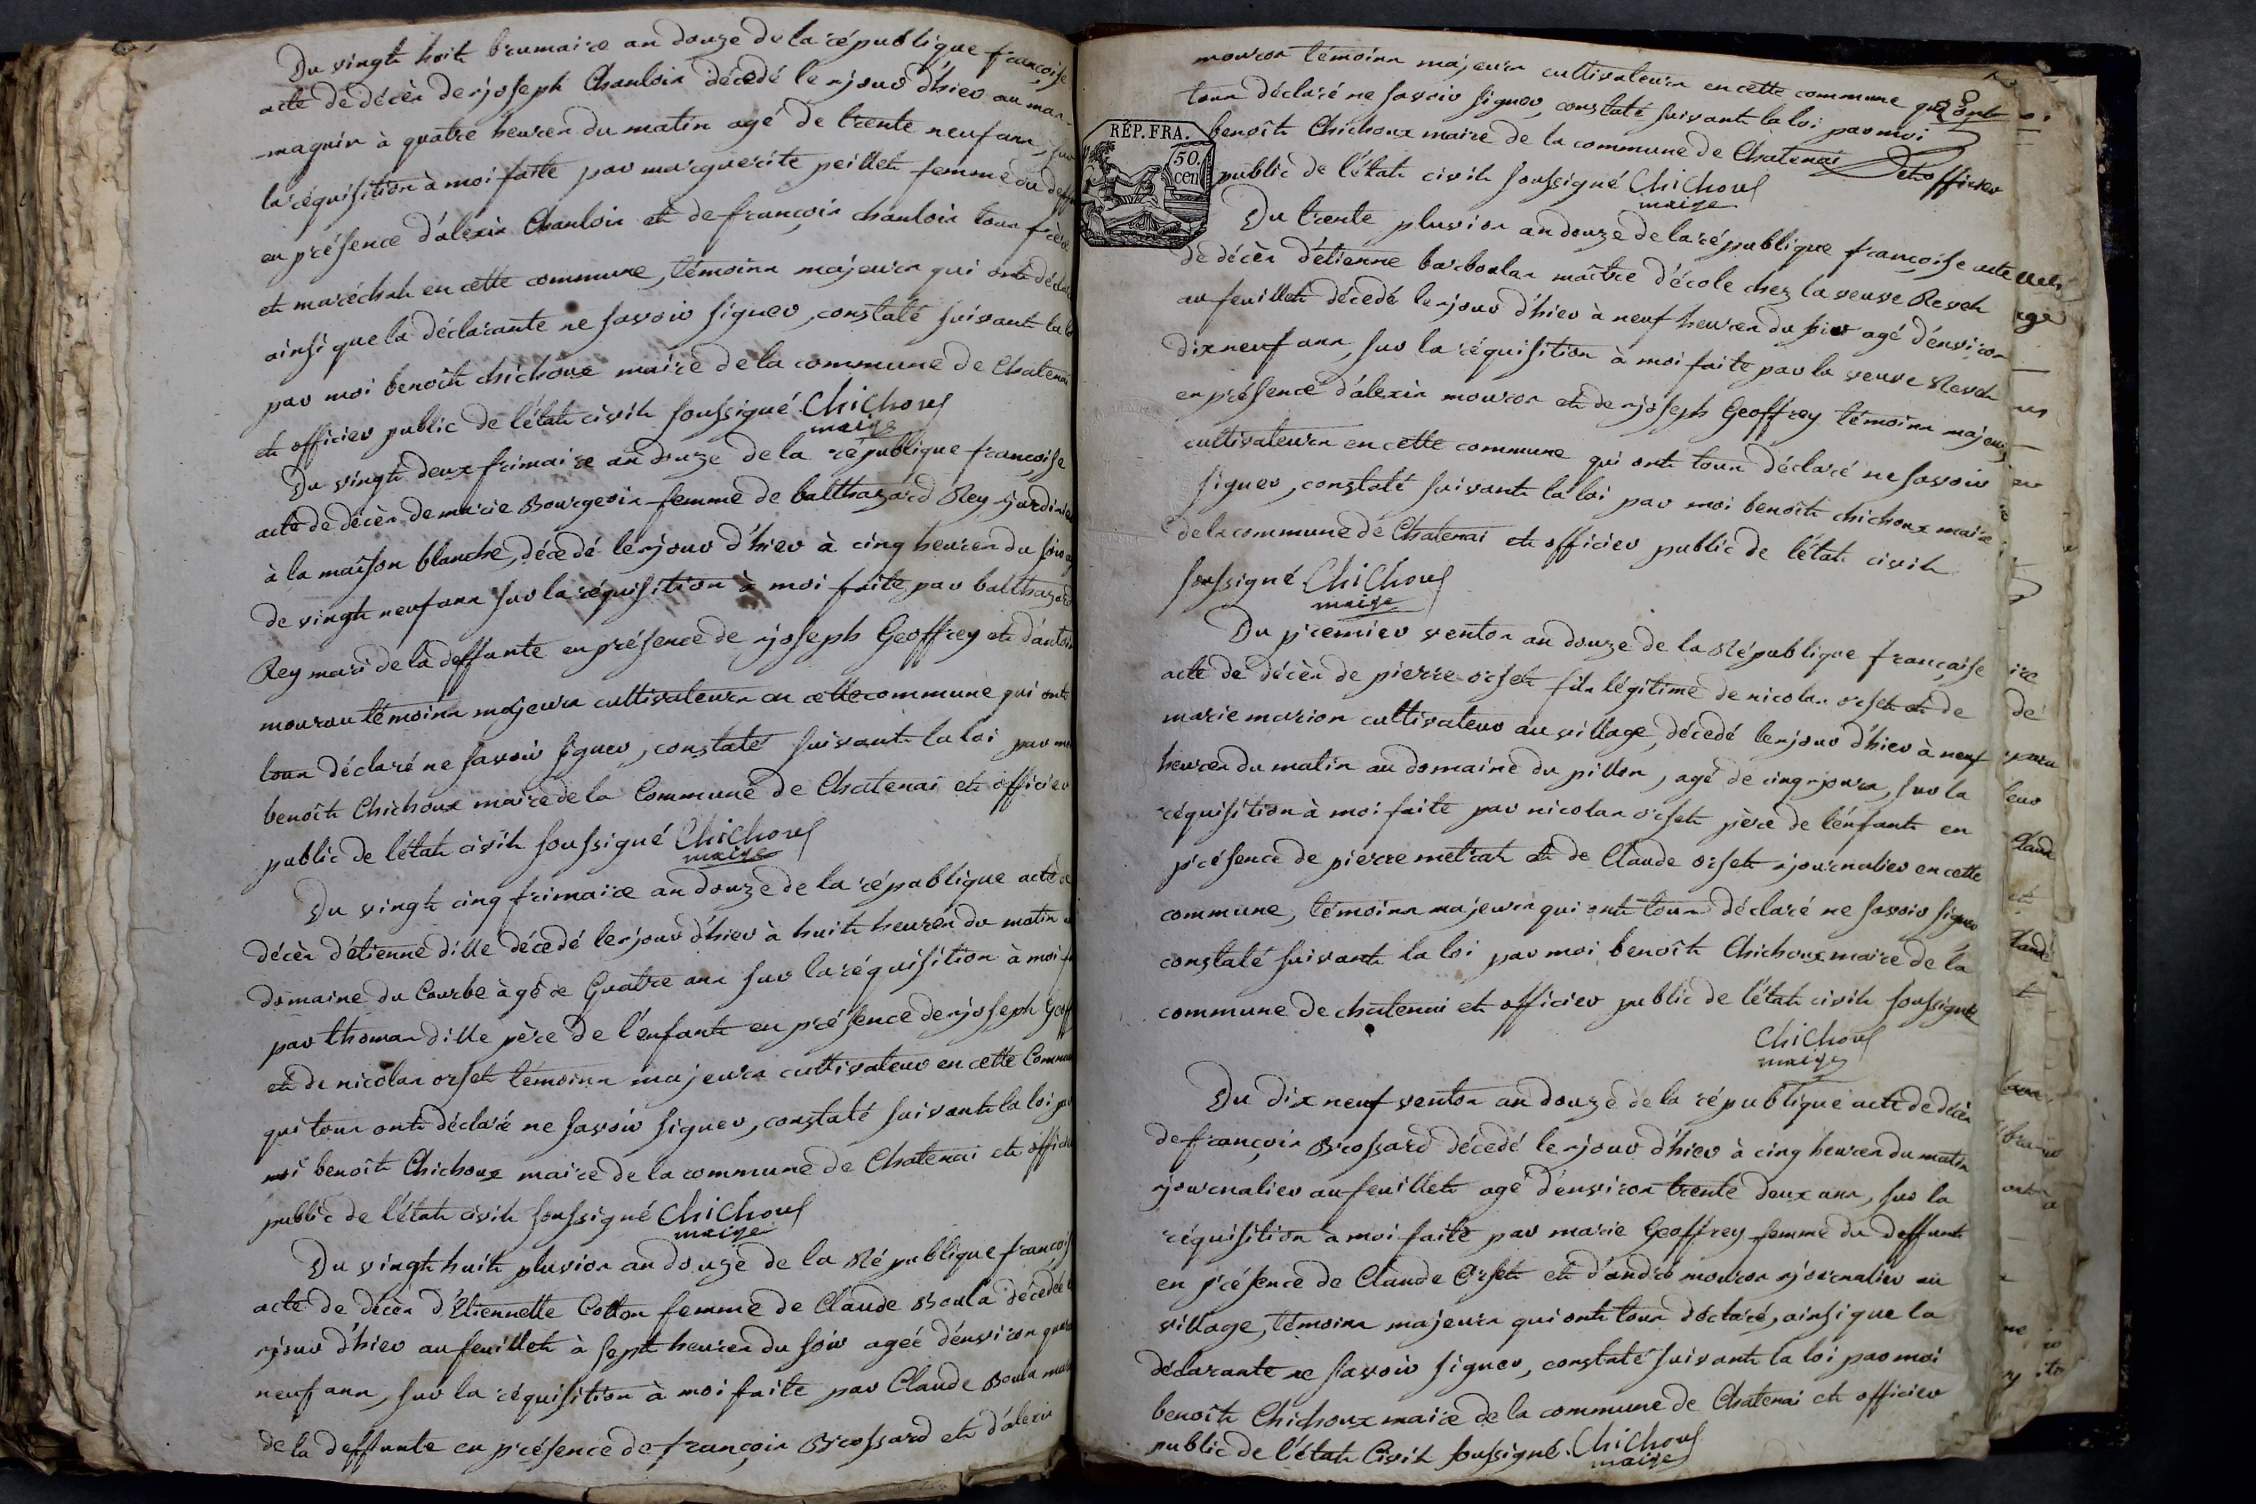 Du vingt huit brumaire an douze de la république françoise
acte de décès de joseph Chanloin décedé le jour d'hier au man-
-magnin à quatre heures du matin agé de trente neuf ans, sur
la réquisition à moi faite par marguerite peillet femme du deff
en présence d'alexis Chanloin et de françois chanloin tous frères
et maréchal en cette commune, témoins majeurs qui ont décla
ainsi que la déclarante ne savoir signer, constaté suivant la lo
par moi benoît chichoux maire de la commune de Chatenai
et officier public de l'état civil soussigné Chichoux
maire
Du vingt deux frimaire an douze de la république françoise
acte de décès de marie Bourgeois femme de balthazard Rey jardinier
à la maison blanche, décedé le jour d'hier à cinq heures du soir a
de vingt neuf ans sur la réquisition à moi faite par balthazard
Rey mari de la deffunte en présence de joseph Geoffrey et d'antoin
mouron témoins majeurs cultivateurs en cette commune qui ont
tous déclaré ne savoir signer, constaté suivant la loi par moi
benoît Chichoux maire de la Commune de Chatenai et officier
public de l'état civil soussigné Chichoux
maire
Du vingt cinq frimaire an douze de la république acte de
décès d'etienne dille décedé le jour d'hier à huit heures du matin au
domaine du Courbe àgé de Quatre ans sur la réquisition à moi f
par thomas dille père de l'enfant en présence de joseph Geoff
et de nicolas orset témoins majeurs cultivateur en cette Commu
qui tous ont déclaré ne savoir signer, constaté suivant la loi pa
moi benoît Chichoux maire de la commune de Chatenai et officie
public de l'état civil soussigné Chichoux
maire
Du vingt huit pluvios an douze de la République françois
acte de décès d'Etiennette Cotton femme de Claude Boula décedée l
jour d'hier au feuillet à sept heures du soir agée d'environ quara
neuf ans, sur la réquisition à moi faite par Claude Boula mari
de la deffunte en présence de françois Brossard et d'alexis
mouron témoins majeurs cultivateurs en cette commune qui ont
tous déclaré ne savoir signer, constaté suivant la loi par moi
benoît Chichoux maire de la commune de Chatenai et officier
public de l'état civil soussigné Chichoux
maire
RÉP. FRA.
50.
cen
Du trente pluvios an douze de la république françoise acte
de décès d'étienne barboulas maître d'école chez la veuve Revel
au feuillet décedé le jour d'hier à neuf heures du soir agé d'environ
dix neuf ans, sur la réquisition à moi faite par la veuve Revel
en présence d'alexis mouron et de joseph Geoffrey témoins majeurs
cultivateurs en cette commune qui ont tous déclaré ne savoir
signer, constaté suivant la loi par moi benoît chichoux maire
de la commune de Chatenai et officier public de l'état civil
soussigné Chichoux
maire
Du premier ventos an douze de la République française
acte de décès de pierre orset fils légitime de nicolas orset et de
marie marion cultivateur au village, décedé le jour d'hier à neuf
heures du matin au domaine du pillon, agé de cinq jours, sur la
réquisition à moi faite par nicolas orset père de l'enfant en
présence de pierre metrat et de Claude orset journalier en cette
commune, témoins majeurs qui ont tous déclaré ne savoir signer
constaté suivant la loi par moi benoît Chichoux maire de la
commune de chatenai et officier public de l'état civil soussigné
Chichoux
maire
Du dix neuf ventos an douze de la république acte de décès
de françois Brossard décedé le jour d'hier à cinq heures du matin
journalier au feuillet agé d'environ trente deux ans, sur la
réquisition a moi faite par marie Geoffrey femme du deffunt
en présence de Claude Orset et d'andré mouron journalier au
village, témoins majeurs qui ont tous déclaré, ainsi que la
déclarante ne savoir signer, constaté suivant la loi par moi
benoît Chichoux maire de la commune de Chatenai et officier
public de l'état Civil soussigné. Chichoux
maire